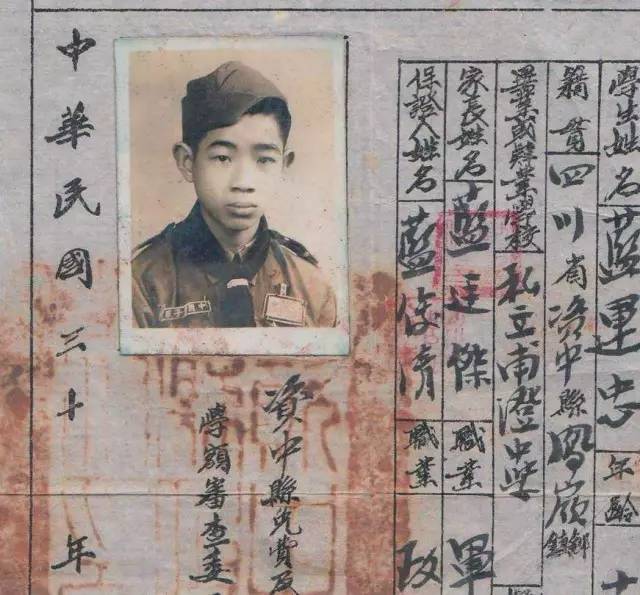 學生姓名 藍運忠 年齡 十
籍貫 四川省資中縣鳳嶺鄉鎮
畢業或肄業學校 私立甫澄中學
家長姓名 藍達傑 職業 軍
保證人姓名 藍俊清 職業 政
資中縣免費及
學額審查委
中華民國三十 年